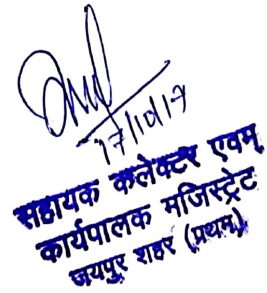 17/10/17
सहायक कलेक्टर एवम्
कार्यपालक मजिस्ट्रेट
जयपुर शहर (प्रथम)